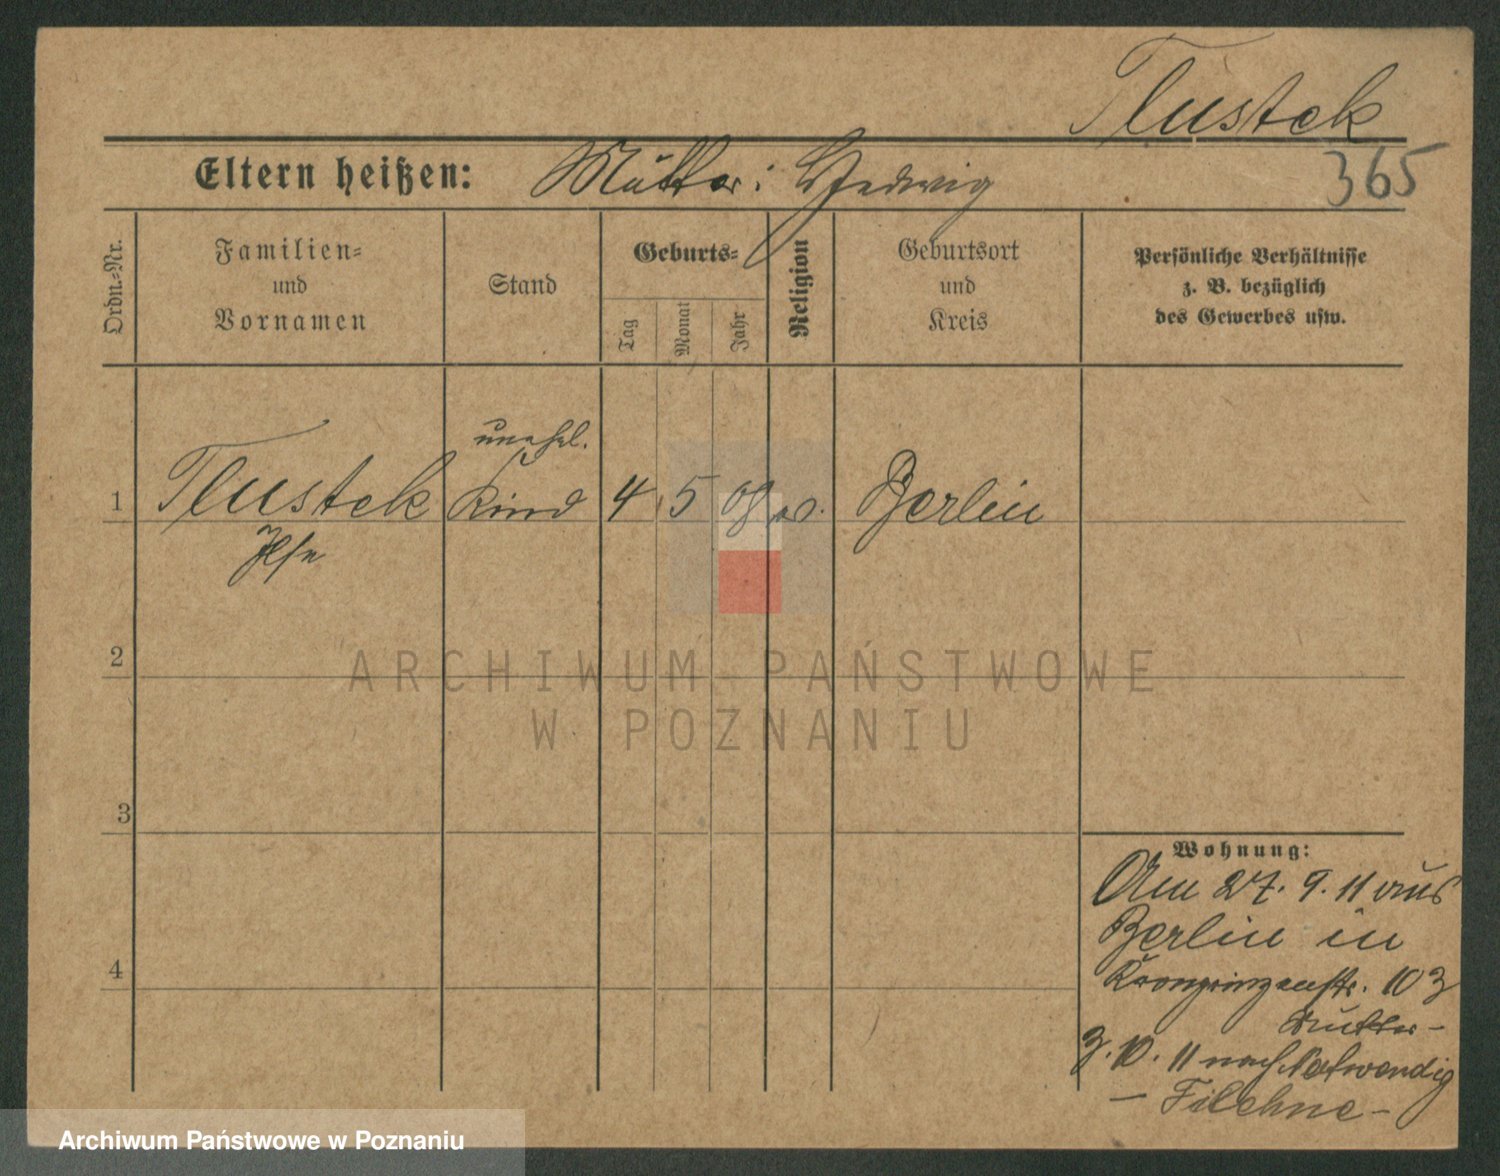 Tlustek
Eltern heißen: Mutter: Hedwig
365
Ordn.-Nr.
Familien-
und
Vornamen
Stand
Geburts-
Tag
Monat
Jahr
Religion
Geburtsort
und
Kreis
Persönliche Verhältnisse
z. B. bezüglich
des Gewerbes usw.
unehel.
1 Tlustek Kind 4 5 08 Berlin
Ilse
2
ARCHIWUM PAŃSTWOWE
W POZNANIU
3
4
Wohnung:
Am 27. 9. 11 aus
Berlin in
Kronprinzenstr. 103
Mutter-
3. 10. 11 nach
- Filehne -
Archiwum Państwowe w Poznaniu